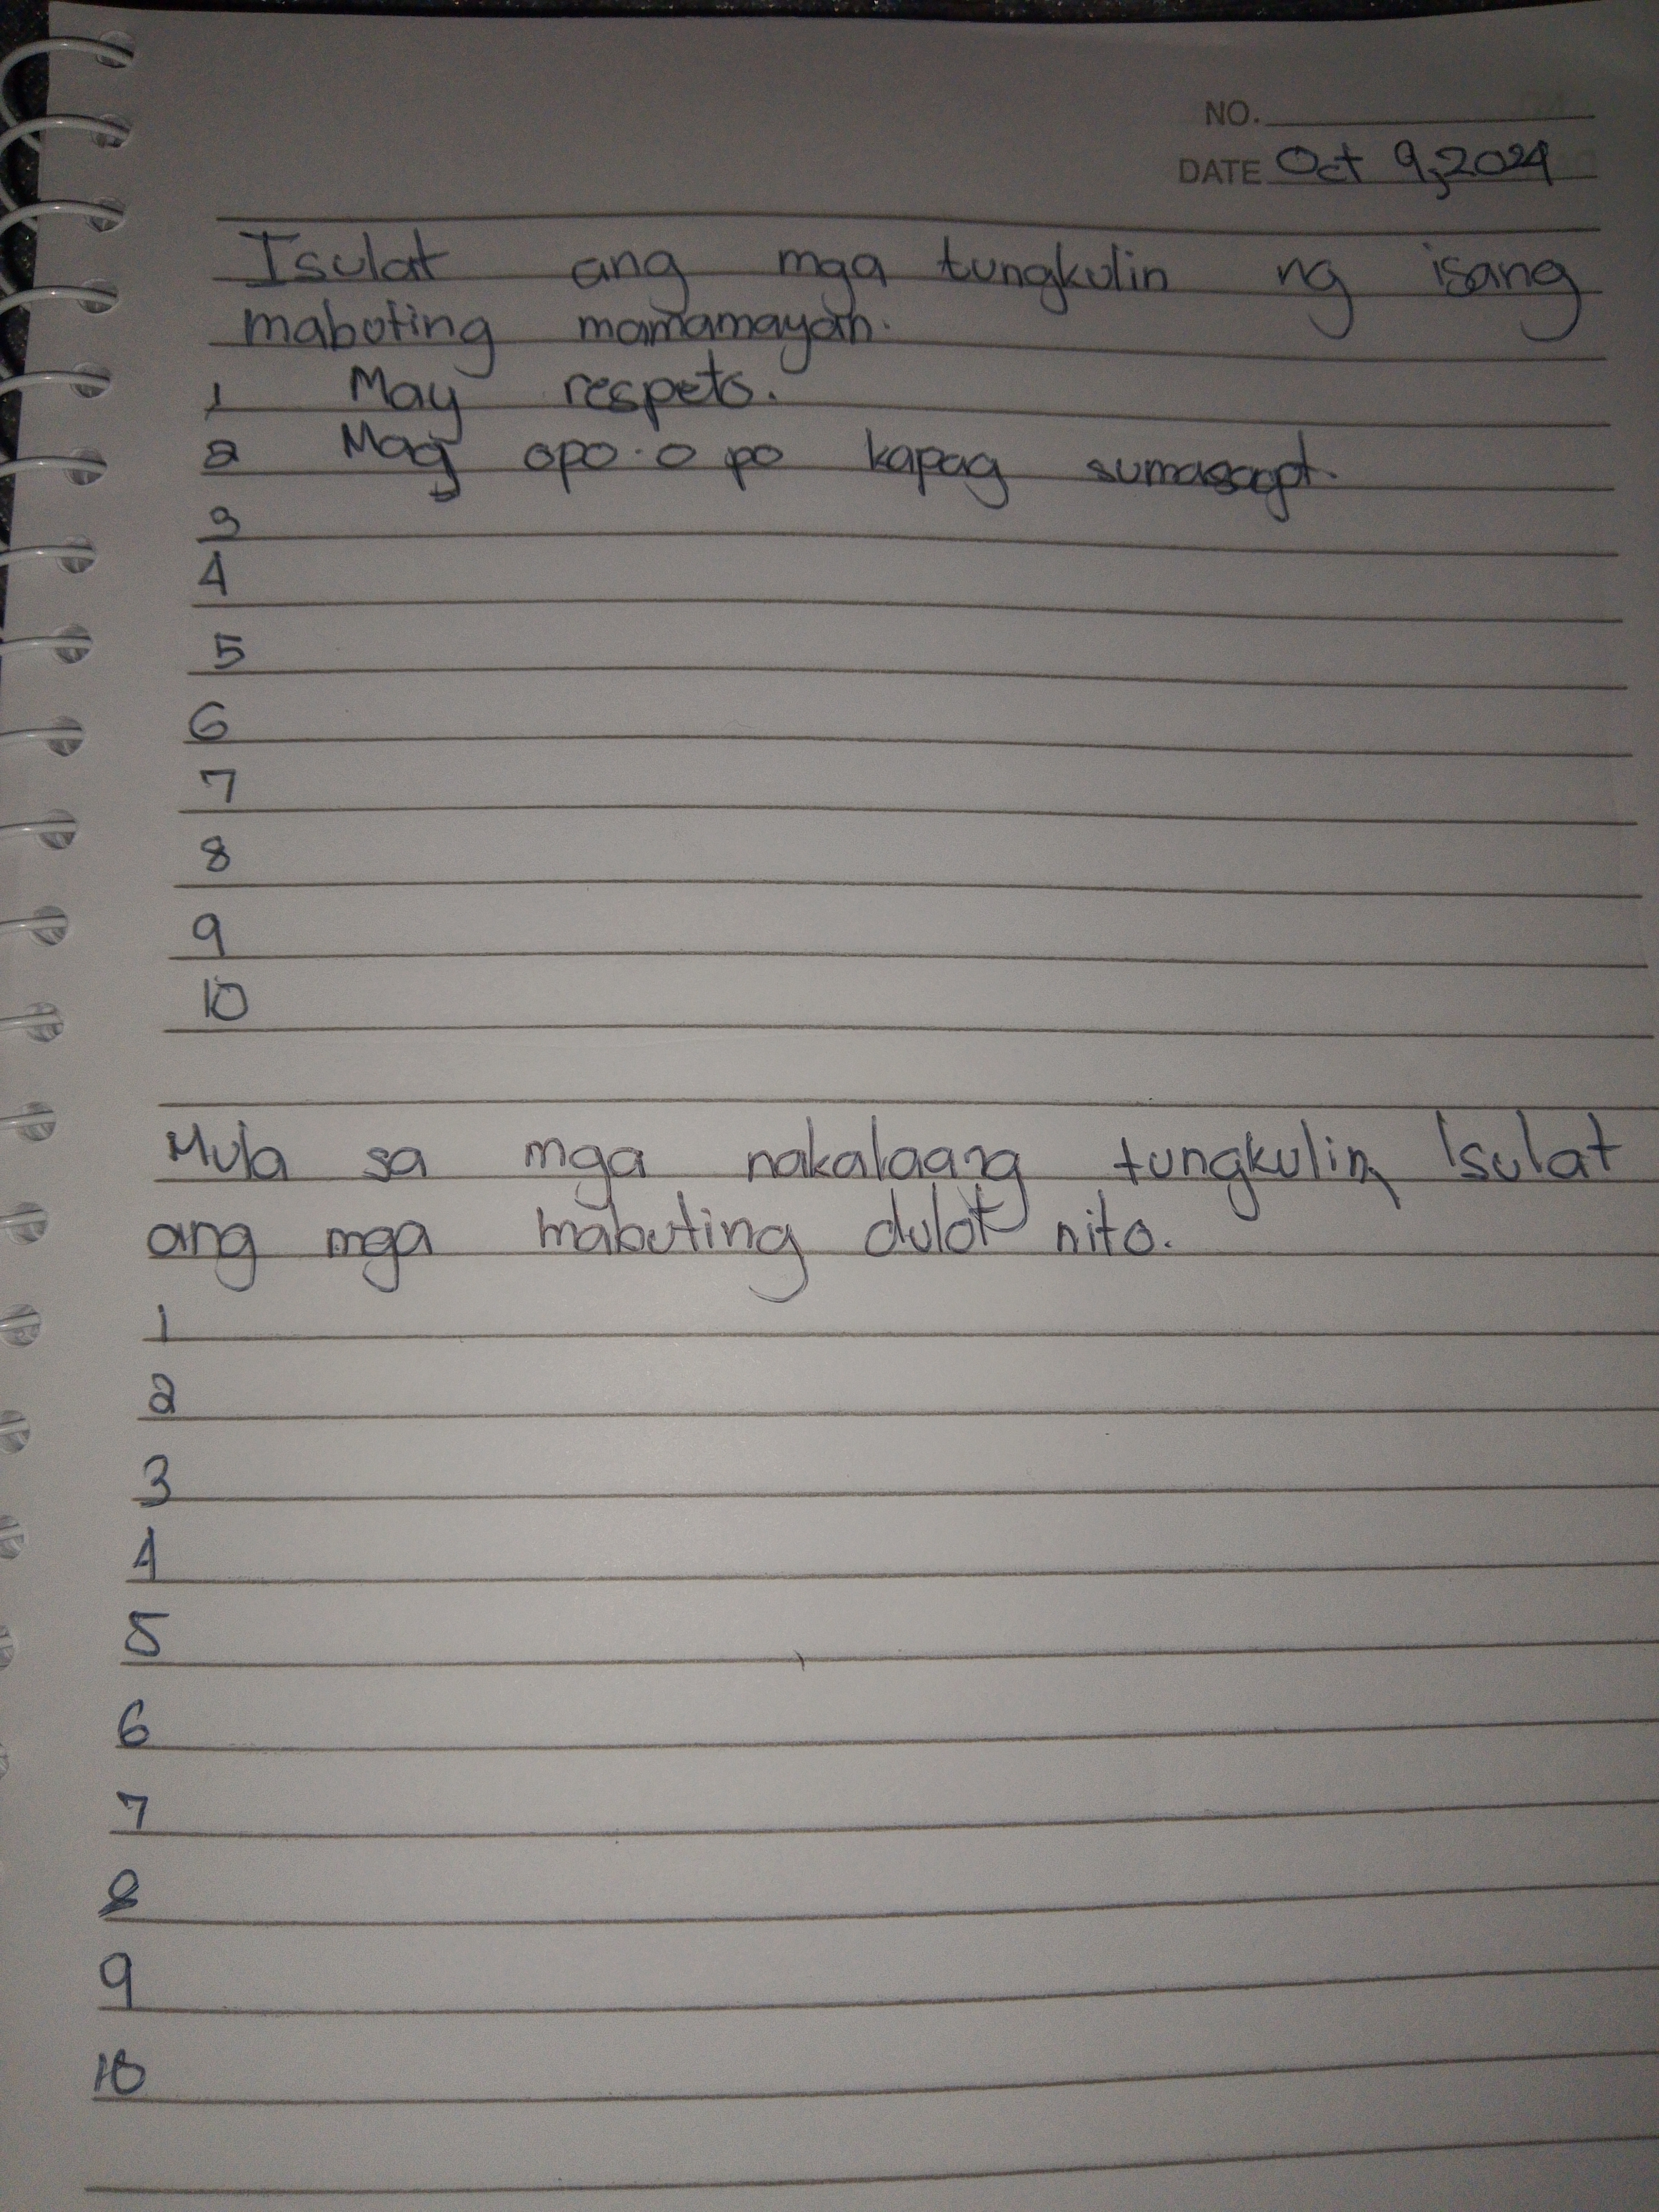 NO.
DATE Oct 9, 2024
Isulat ang mga tungkulin ng isang
mabuting mamamayan.
1 May respeto.
2 Mag opo-o po kapag sumasagot.
3
4
5
6
7
8
9
10
Mula sa mga nakalaang tungkulin, Isulat
ang mga mabuting dulot nito.
1
2
3
4
5
6
7
8
9
10